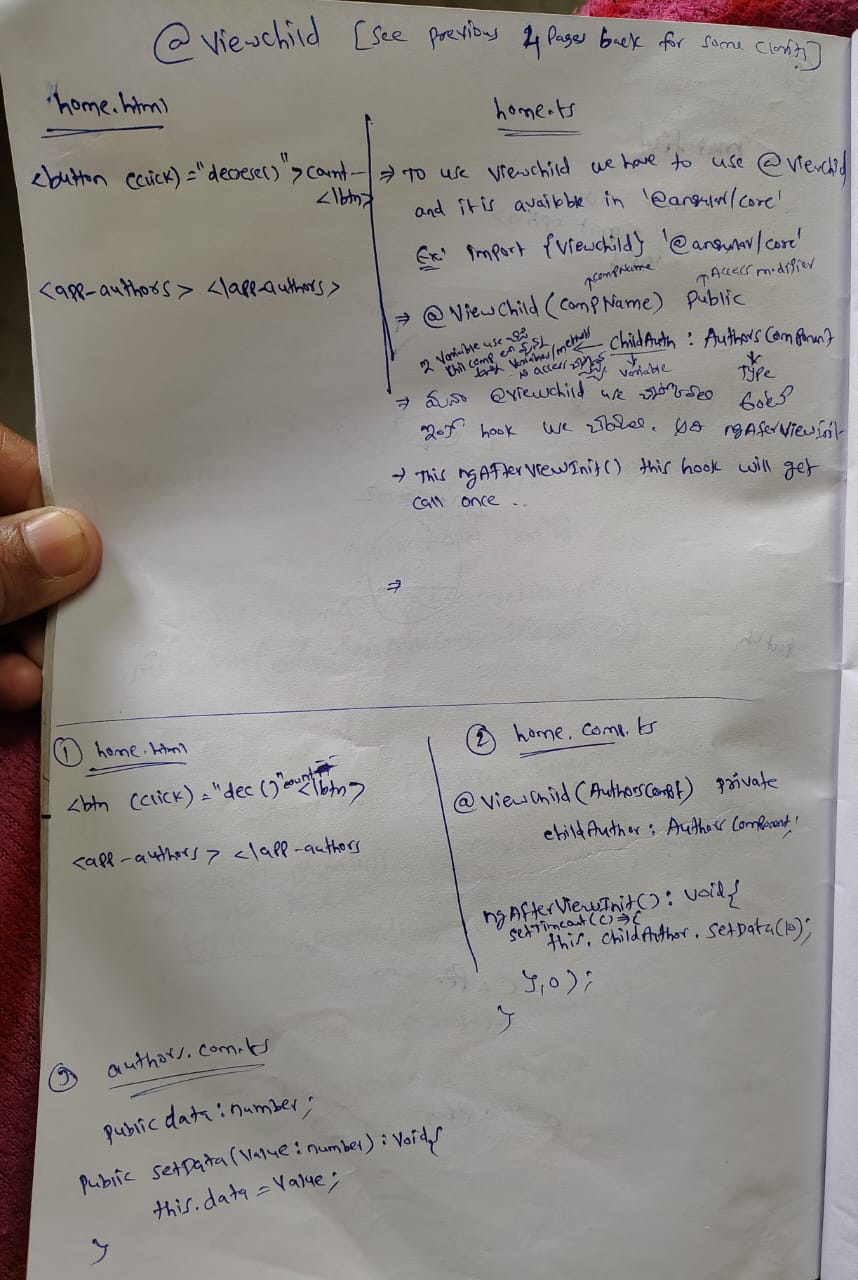 @ Viewchild [See previous 4 Pages back for some Clarity]
home.html
<button (click)="decrese()">count
</btn>
<app-authors> </app-authors>
home.ts
⇒ To use Viewchild we have to use @Viewchild
and it is available in '@angular/core'
Ex: import {Viewchild} '@angular/core'
↑compName ↑Access modifier
⇒ @ViewChild(CompName) Public
ChildAuth : AuthorsComponent
variable Type
⇒ మనం @viewchild use
hook we ngAfterViewInit
→ This ngAfterViewInit() this hook will get
call once ..
⇒
① home.html
<btn (click)="dec()" count </btn>
<app-authors> </app-authors
② home.comp.ts
@ViewChild(AuthorsCompt) private
childAuthor : AuthorsComponent;
ngAfterViewInit(): void{
setTimeout(()=>{
this.childAuthor.setData(10);
},0);
}
③ authors.com.ts
public data:number;
Public setData(Value:number):void{
this.data=Value;
}